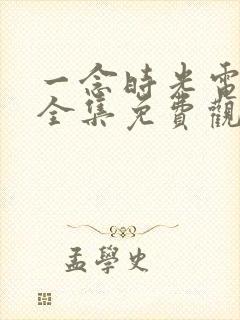 一念時光電
全集免費觀
孟學史